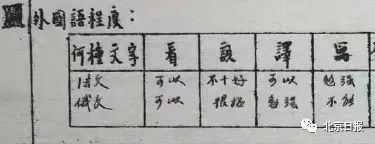 外國語程度：
何種文字 看 說 譯 寫
法文 可以 不十好 可以 勉强
俄文 可以 很坏 勉强 不能
北京日报